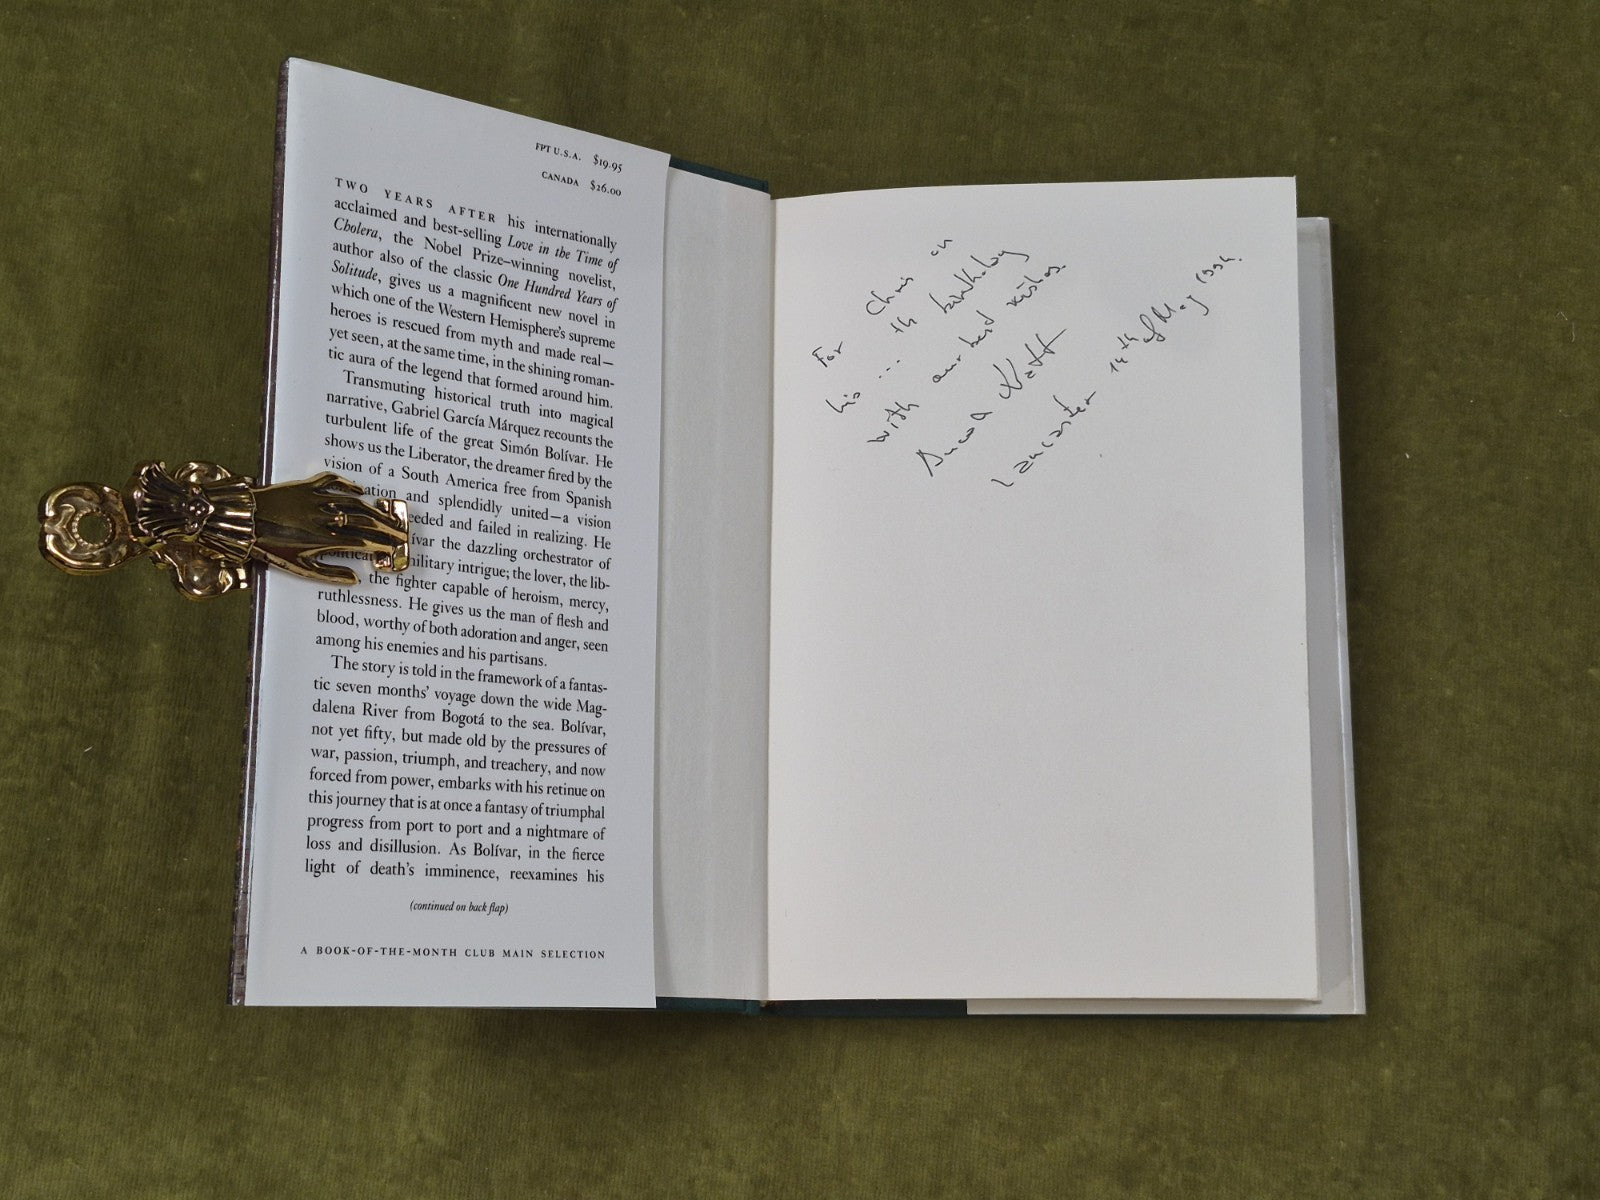 FPT U.S.A. $19.95
CANADA $26.00
TWO YEARS AFTER his internationally
acclaimed and best-selling Love in the Time of
Cholera, the Nobel Prize–winning novelist,
author also of the classic One Hundred Years of
Solitude, gives us a magnificent new novel in
which one of the Western Hemisphere's supreme
heroes is rescued from myth and made real—
yet seen, at the same time, in the shining roman-
tic aura of the legend that formed around him.
Transmuting historical truth into magical
narrative, Gabriel García Márquez recounts the
turbulent life of the great Simón Bolívar. He
shows us the Liberator, the dreamer fired by the
vision of a South America free from Spanish
and splendidly united—a vision
and failed in realizing. He
the dazzling orchestrator of
political military intrigue; the lover, the lib-
the fighter capable of heroism, mercy,
ruthlessness. He gives us the man of flesh and
blood, worthy of both adoration and anger, seen
among his enemies and his partisans.
The story is told in the framework of a fantas-
tic seven months' voyage down the wide Mag-
dalena River from Bogotá to the sea. Bolívar,
not yet fifty, but made old by the pressures of
war, passion, triumph, and treachery, and now
forced from power, embarks with his retinue on
this journey that is at once a fantasy of triumphal
progress from port to port and a nightmare of
loss and disillusion. As Bolívar, in the fierce
light of death's imminence, reexamines his
(continued on back flap)
A BOOK-OF-THE-MONTH CLUB MAIN SELECTION
For Chris on
his ... th birthday
with our best wishes.
Lancaster 14th of May 1994.